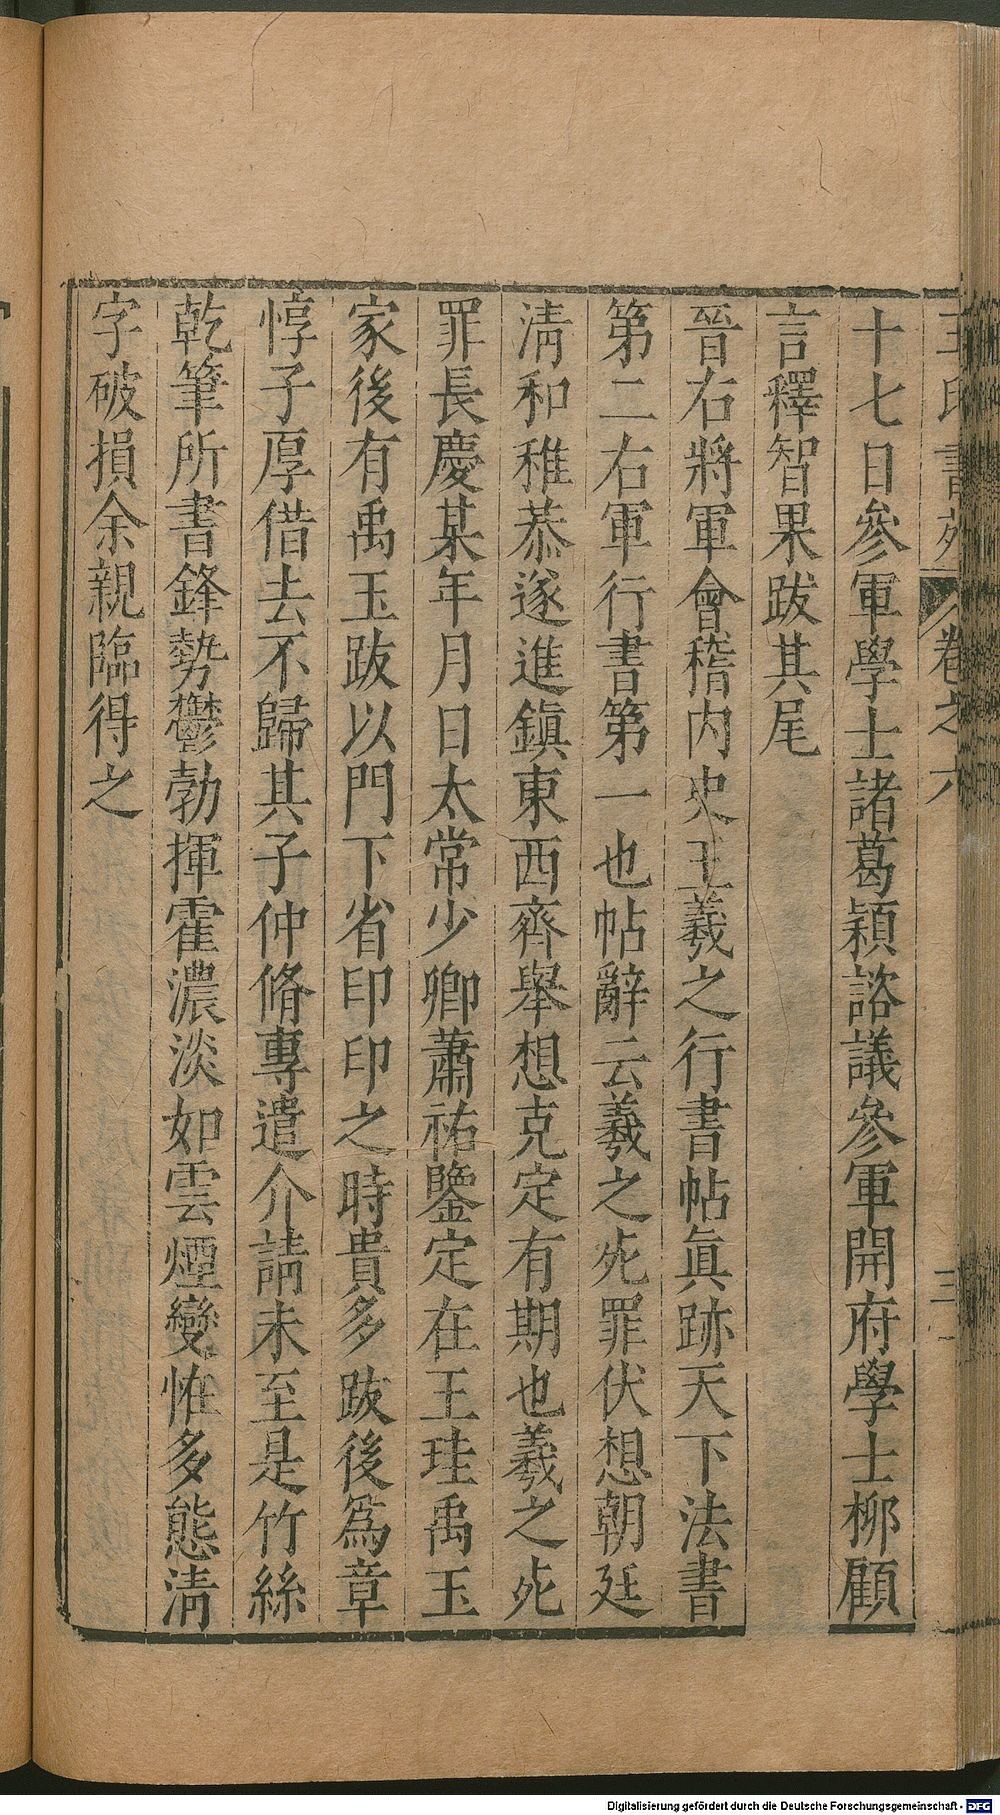 王氏書苑 卷之六 三
十七日參軍學士諸葛穎諮議參軍開府學士柳顧
言釋智果跋其尾
晉右將軍會稽内史王羲之行書帖眞跡天下法書
第二右軍行書第一也帖辭云羲之死罪伏想朝廷
清和稚恭遂進鎮東西齊舉想克定有期也羲之死
罪長慶某年月日太常少卿蕭祐鑒定在王珪禹玉
家後有禹玉跋以門下省印印之時貴多跋後爲章
惇子厚借去不歸其子仲脩專遣介請未至是竹絲
乾筆所書鋒勢鬱勃揮霍濃淡如雲煙變恠多態清
字破損余親臨得之
Digitalisierung gefördert durch die Deutsche Forschungsgemeinschaft - DFG